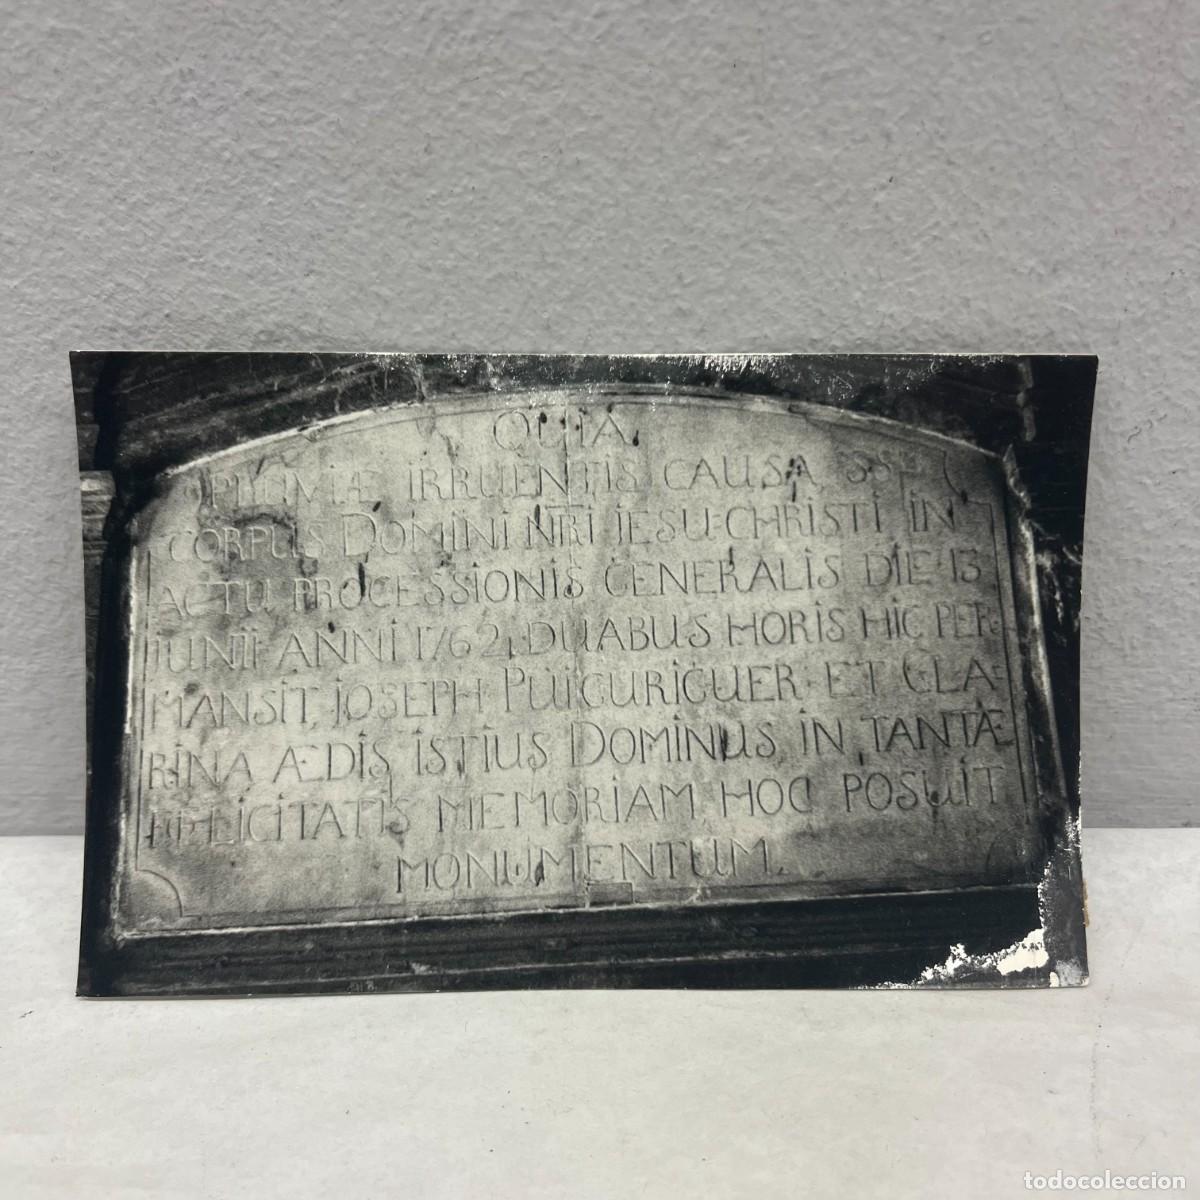 QUIA,
PLUVIÆ IRRUENTIS CAUSA, SS
CORPUS DOMINI NRI IESU-CHRISTI IN
ACTU PROCESSIONIS GENERALIS DIE 13
JUNII ANNI 1762, DUABUS HORIS HIC PER-
MANSIT, JOSEPH PUIGURIGUER ET CLA-
RINA ÆDIS ISTIUS DOMINUS, IN TANTÆ
FELICITATIS MEMORIAM, HOC POSUIT
MONUMENTUM.
todocoleccion